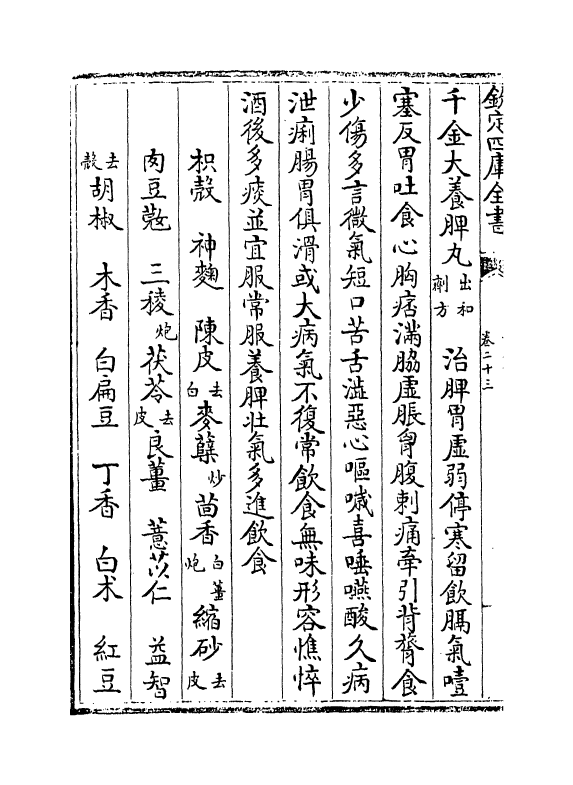 欽定四庫全書
卷二十三
千金大養脾丸出和劑方　治脾胃虛弱停寒留飲膈氣噎
塞反胃吐食心胸痞滿脇虛脹胷腹刺痛牽引背膂食
少傷多言微氣短口苦舌澁惡心嘔噦喜唾嚥酸久病
泄痢腸胃俱滑或大病氣不復常飲食無味形容憔悴
酒後多痰並宜服常服養脾壯氣多進飲食
枳殼　神麯　陳皮去白　麥櫱炒　茴香　白薑炮　縮砂去皮
肉豆蔲　三稜炮　茯苓去皮　良薑　薏苡仁　益智
去殼　胡椒　木香　白扁豆　丁香　白术　紅豆